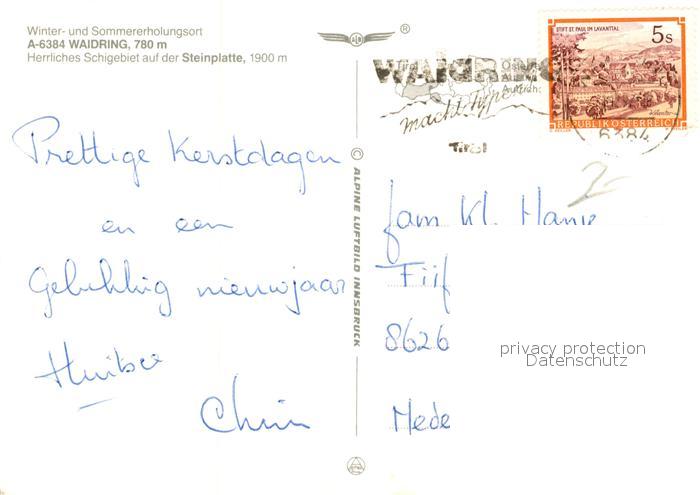 Winter- und Sommererholungsort
A-6384 WAIDRING, 780 m
Herrliches Schigebiet auf der Steinplatte, 1900 m
®
WAIDRING
macht
Tirol
STIFT ST. PAUL IM LAVANTTAL
5s
REPUBLIK ÖSTERREICH
6384
2-
Prettige Kerstdagen
en een
Gelukkig nieuwjaar
© ALPINE LUFTBILD INNSBRUCK
fam Kl.
8626
privacy protection
Datenschutz